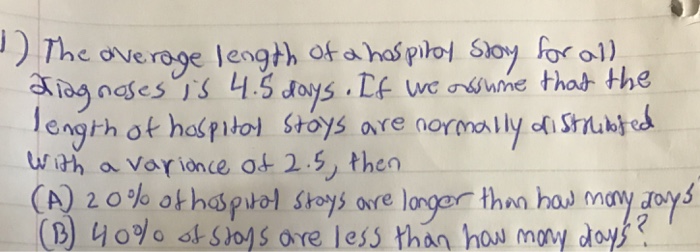 1) The average length of a hospital stay for all
diagnoses is 4.5 days. If we assume that the
length of hospital stays are normally distributed
with a variance of 2.5, then
(A) 20% of hospital stays are longer than how many days
(B) 40% of stays are less than how many days?